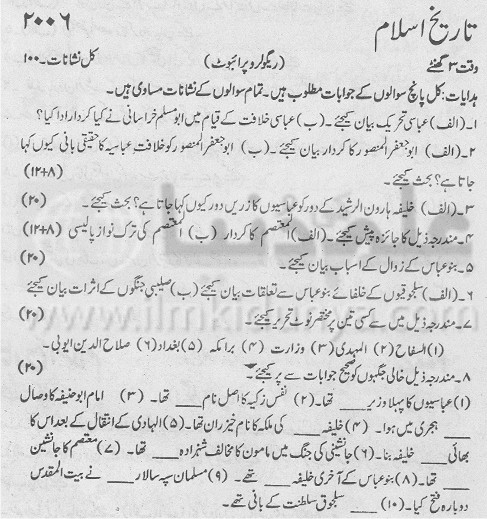 تاریخ اسلام
۲۰۰۶
وقت ۳ گھنٹے (ریگولر و پرائیوٹ) کل نشانات۔۱۰۰
ہدایات: کل پانچ سوالوں کے جوابات مطلوب ہیں۔ تمام سوالوں کے نشانات مساوی ہیں۔
۱۔ (الف) عباسی تحریک بیان کیجئے۔ (ب) عباسی خلافت کے قیام میں ابو مسلم خراسانی نے کیا کردار ادا کیا؟
۲۔ (الف) ابو جعفر المنصور کا کردار بیان کیجئے۔ (ب) ابو جعفر المنصور کو خلافت عباسیہ کا حقیقی بانی کیوں کہا
جاتا ہے؟ بحث کیجئے۔ (۱۲+۸)
۳۔ (الف) خلیفہ ہارون الرشید کے دور کو عباسیوں کا زریں دور کیوں کہا جاتا ہے؟ بحث کیجئے۔ (۲۰)
۴۔ مندرجہ ذیل کا جائزہ پیش کیجئے۔ (الف) المعتصم کا کردار (ب) المعتصم کی ترک نواز پالیسی (۱۲+۸)
۵۔ بنو عباس کے زوال کے اسباب بیان کیجئے۔ (۲۰)
۶۔ (الف) سلجوقیوں کے خلفائے بنو عباس سے تعلقات بیان کیجئے (ب) صلیبی جنگوں کے اثرات بیان کیجئے
۷۔ مندرجہ ذیل میں سے کسی تین پر مختصر نوٹ تحریر کیجئے۔ (۲۰)
(۱) السفاح (۲) المہدی (۳) وزارت (۴) برامکہ (۵) بغداد (۶) صلاح الدین ایوبی۔
۸۔ مندرجہ ذیل خالی جگہوں کو صحیح جوابات سے پر کیجئے۔ (۲۰)
(۱) عباسیوں کا پہلا وزیر ___ تھا۔ (۲) نفس زکیہ کا اصل نام ___ تھا۔ (۳) امام ابو حنیفہ کا وصال
___ ہجری میں ہوا۔ (۴) خلیفہ ___ کی ملکہ کا نام خیزران تھا۔ (۵) الہادی کے انتقال کے بعد اس کا
بھائی ___ خلیفہ بنا۔ (۶) جانشینی کی جنگ میں مامون کا مخالف شہزادہ ___ تھا۔ (۷) معتصم کا جانشین
___ تھا۔ (۸) بنو عباس کے آخری خلیفہ ___ تھے۔ (۹) مسلمان سپہ سالار ___ نے بیت المقدس
دوبارہ فتح کیا۔ (۱۰) ___ سلجوق سلطنت کے بانی تھے۔